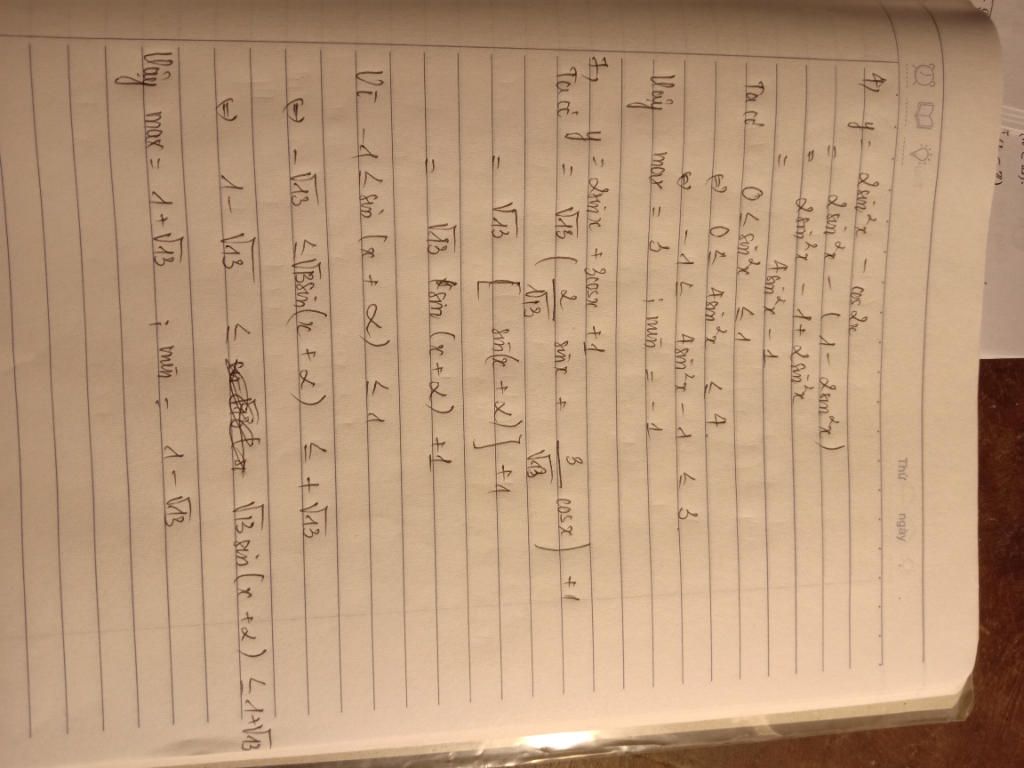 Thứ ngày
4) y = 2sin²x - cos2x
= 2sin²x - (1 - 2sin²x)
= 2sin²x - 1 + 2sin²x
= 4sin²x - 1
Ta có 0 ≤ sin²x ≤ 1
⇔ 0 ≤ 4sin²x ≤ 4
⇔ -1 ≤ 4sin²x - 1 ≤ 3
Vậy max = 3 ; min = -1
7) y = 2sinx + 3cosx + 1
Ta có y = √13 ( 2/√13 sinx + 3/√13 cosx ) + 1
= √13 [ sin(x + α) ] + 1
= √13 sin (x + α) + 1
Vì -1 ≤ sin (x + α) ≤ 1
⇔ -√13 ≤ √13sin(x + α) ≤ +√13
⇔ 1 - √13 ≤ √13sin(x + α) ≤ 1+√13
Vậy max = 1 + √13 ; min = 1 - √13